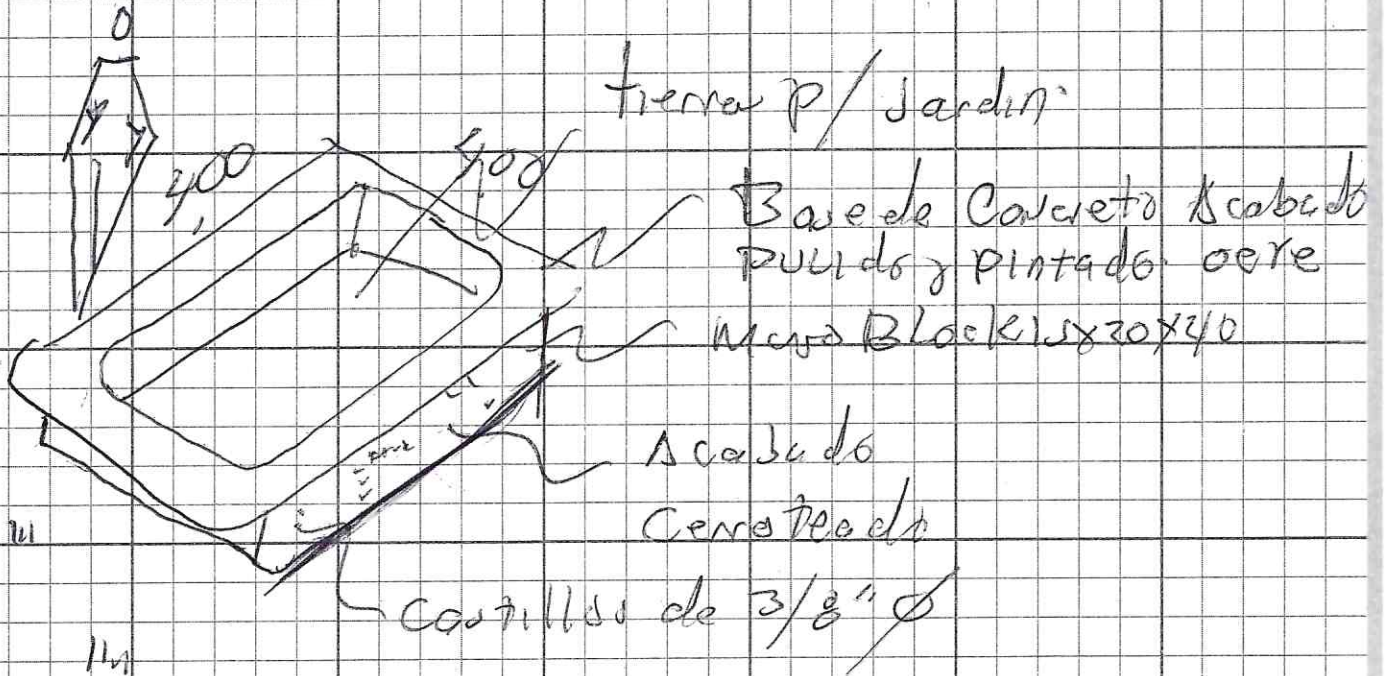 tierra p/ Jardin
4,00
400
Base de Concreto Acabado
Pulido y Pintado ocre
Muro Block 15x20x40
Acabado
Cerroteado
Castillos de 3/8" Ø